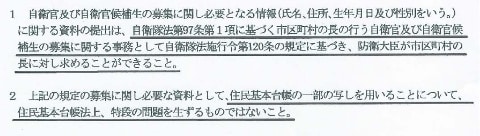 1 自衛官及び自衛官候補生の募集に関し必要となる情報(氏名、住所、生年月日及び性別をいう。)
に関する資料の提出は、自衛隊法第97条第1項に基づく市区町村の長の行う自衛官及び自衛官候
補生の募集に関する事務として自衛隊法施行令第120条の規定に基づき、防衛大臣が市区町村の
長に対し求めることができること。
2 上記の規定の募集に関し必要な資料として、住民基本台帳の一部の写しを用いることについて、
住民基本台帳法上、特段の問題を生ずるものではないこと。